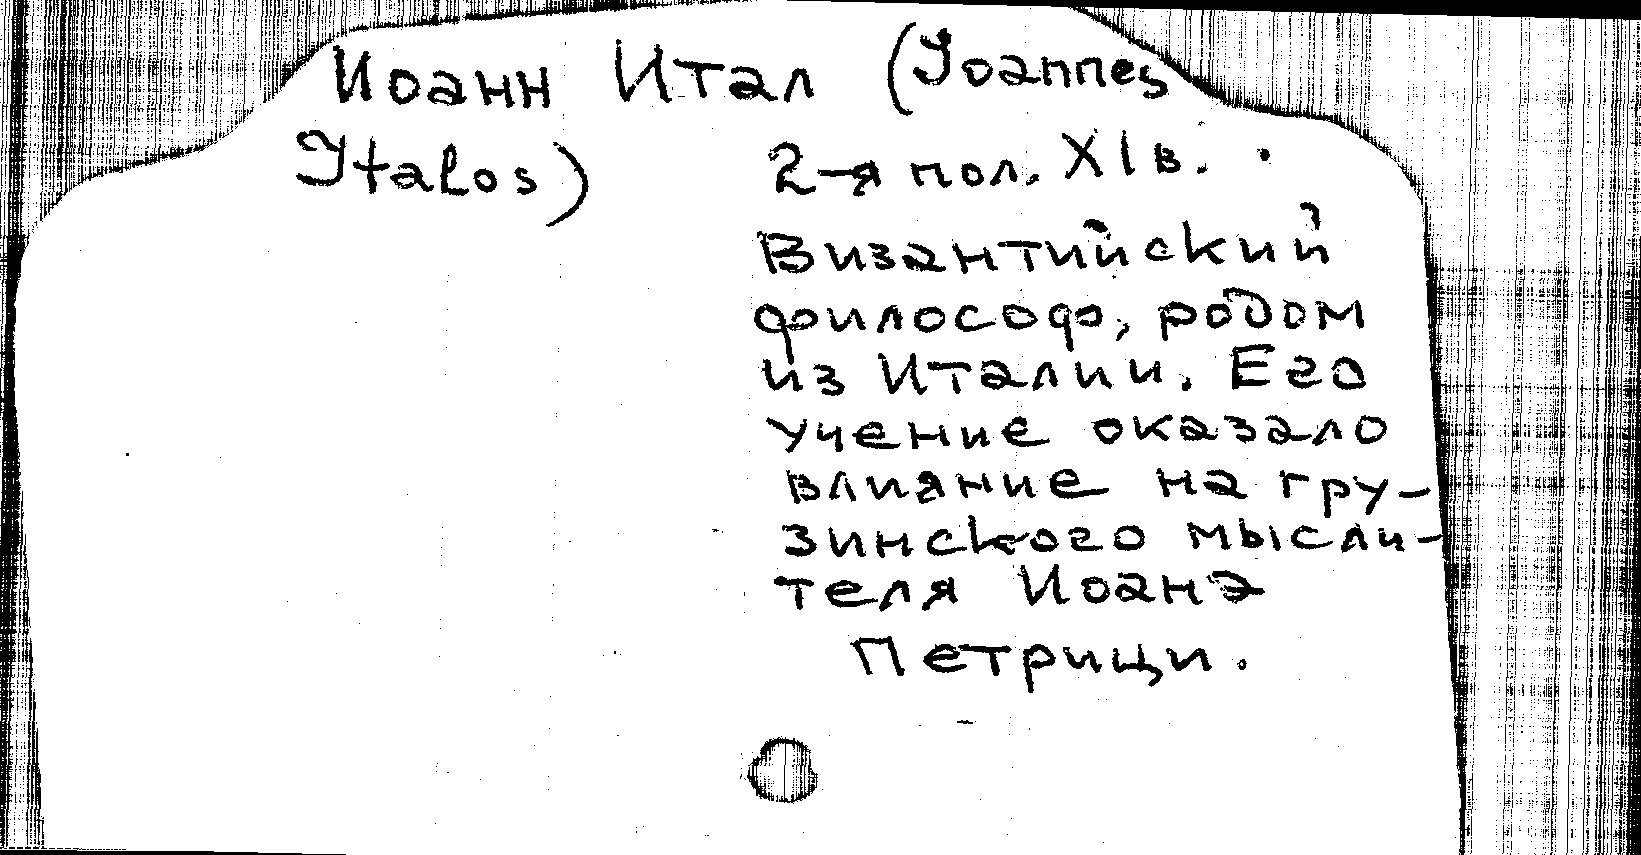 Иоанн Итал (Joannes
Italos) 2-я пол. XI в.
Византийский
философ, родом
из Италии. Его
учение оказало
влияние на гру-
зинского мысли-
теля Иоанэ
Петрици.